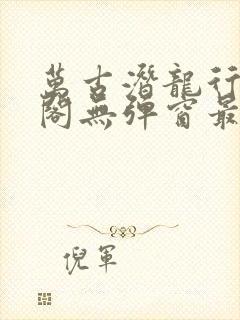 萬古潛龍行
閣無彈窗最
倪軍